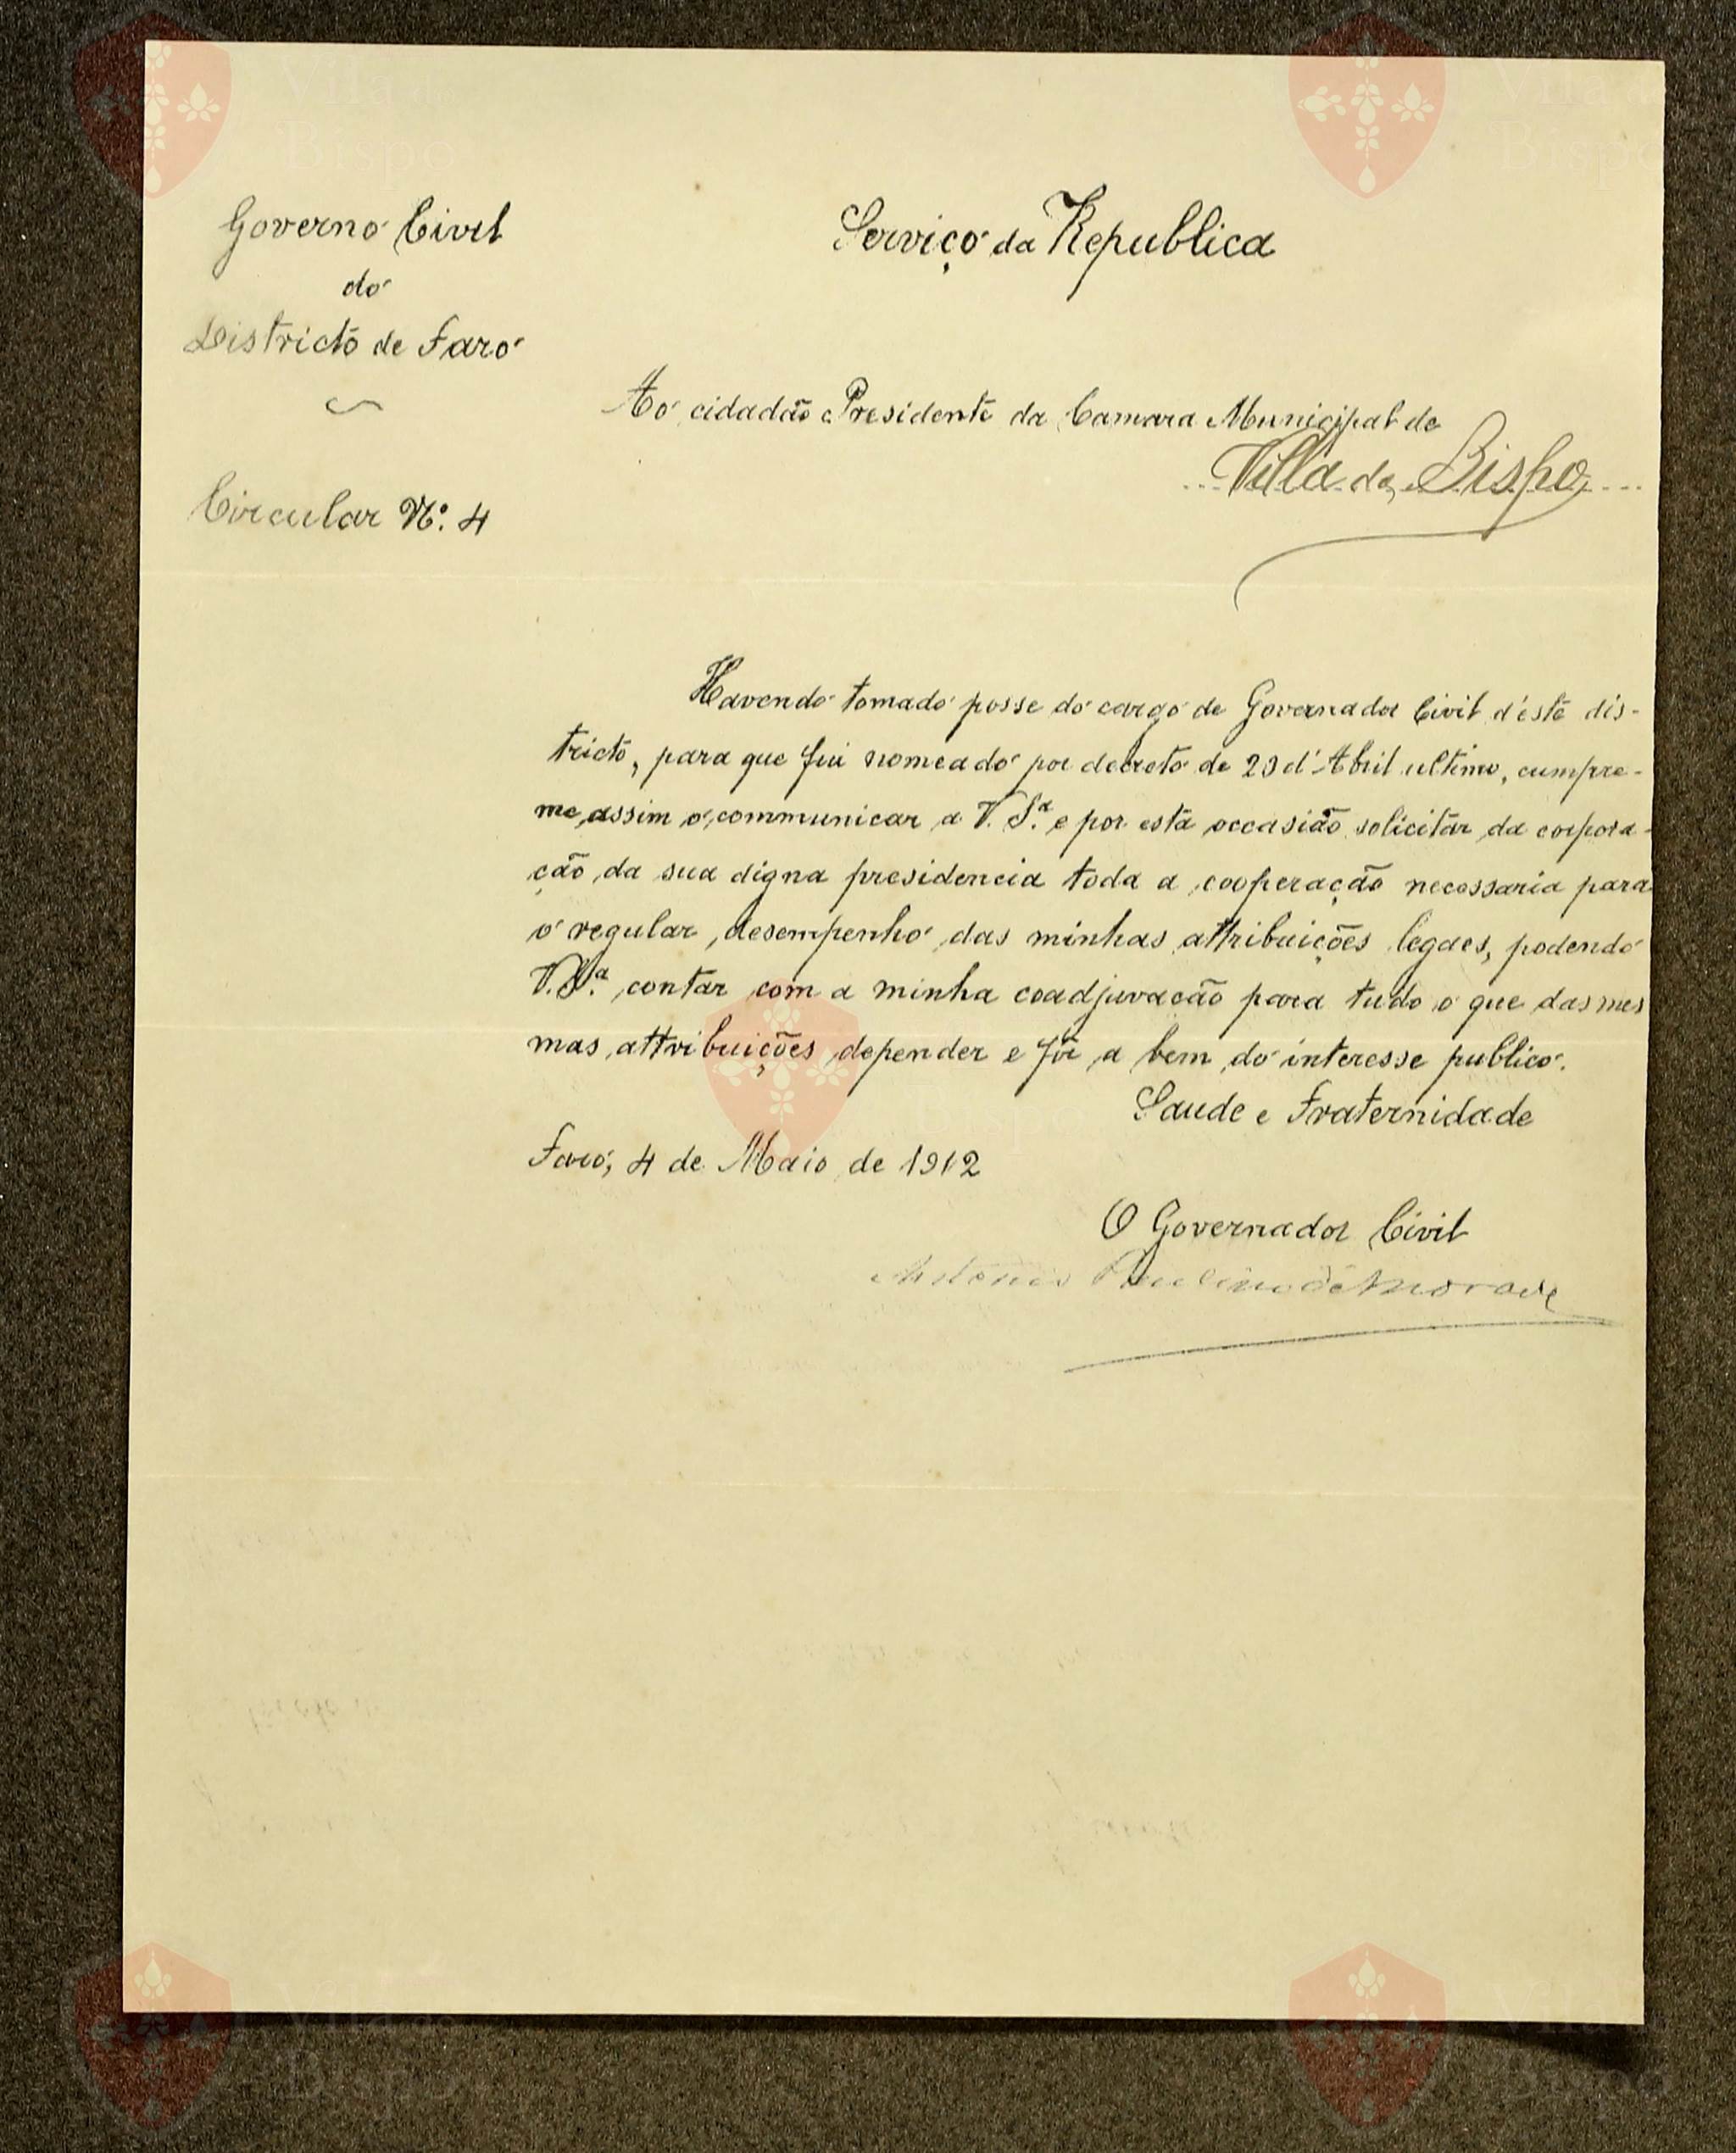 Governo Civil
do
Districto de Faro
Circular Nº. 4
Serviço da Republica
Ao cidadão Presidente da Camara Municipal de
Villa do Bispo
Havendo tomado posse do cargo de Governador Civil d'este dis-
tricto, para que fui nomeado por decreto de 29 d'Abril ultimo, cumpre-
me assim o communicar a V. S.ª e por esta occasião solicitar da corpora-
ção da sua digna presidencia toda a cooperação necessaria para
o regular desempenho das minhas attribuições legaes, podendo
V. S.ª contar com a minha coadjuvação para tudo o que das mes
mas attribuições depender e fôr a bem do interesse publico.
Saude e Fraternidade
Faro, 4 de Maio de 1912
O Governador Civil
Antonio Paulino de
Vila do
Bispo